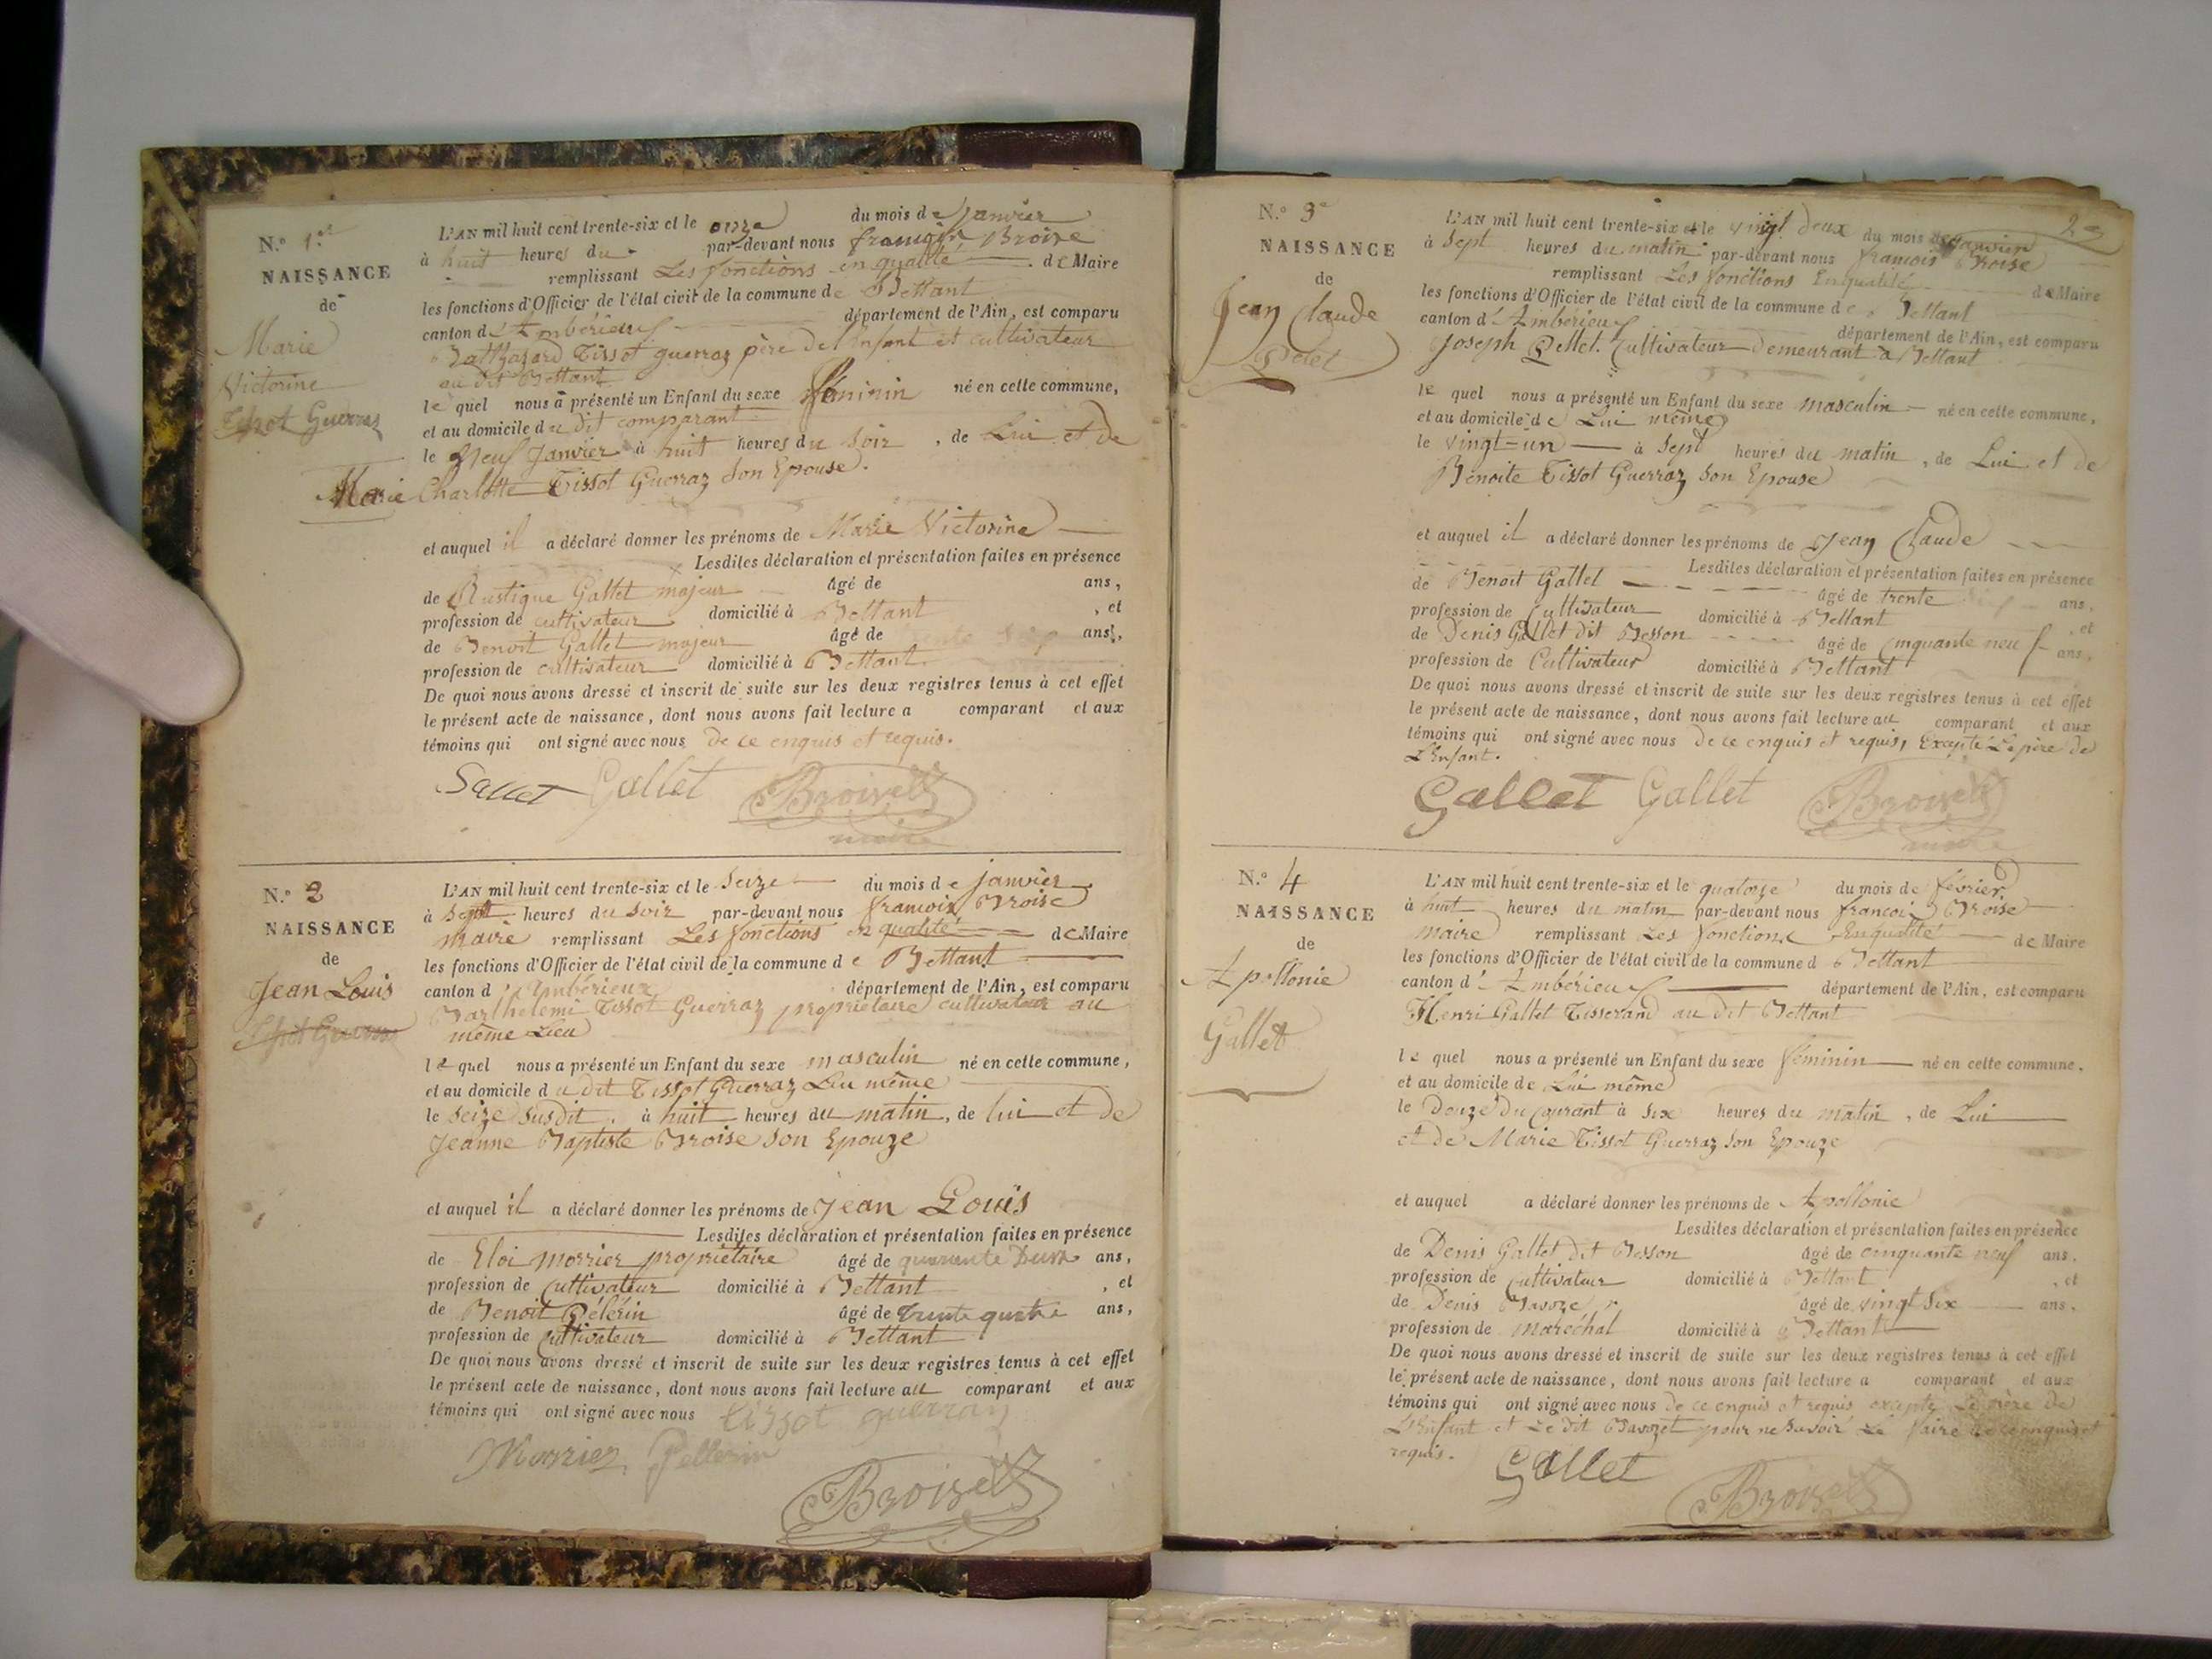 N.° 1.er
NAISSANCE
de
Marie
Victorine
Tissot Guerraz
L'AN mil huit cent trente-six et le onze du mois de janvier
à huit heures du par-devant nous françois Broize
remplissant Les fonctions en qualité de Maire
les fonctions d'Officier de l'état civil de la commune de Bettant
canton d'Ambérieux département de l'Ain, est comparu
Balthazard Tissot guerraz père de l'Enfant et cultivateur
au dit Bettant
le quel nous a présenté un Enfant du sexe féminin né en cette commune,
et au domicile du dit comparant
le Neuf Janvier à huit heures du soir, de Lui et de
Marie Charlotte Tissot Guerraz Son Epouse.
et auquel il a déclaré donner les prénoms de Marie Victorine
Lesdites déclaration et présentation faites en présence
de Rustique Gallet majeur âgé de ans,
profession de cultivateur domicilié à Bettant, et
de Benoit Gallet majeur âgé de ans,
profession de cultivateur domicilié à Bettant
De quoi nous avons dressé et inscrit de suite sur les deux registres tenus à cet effet
le présent acte de naissance, dont nous avons fait lecture a comparant et aux
témoins qui ont signé avec nous de ce enquis et requis.
Gallet Gallet Broizet
maire
N.° 2
NAISSANCE
de
Jean Louis
Tissot Guerraz
L'AN mil huit cent trente-six et le Seize du mois de janvier
à Sept heures du Soir par-devant nous françois Broise
maire remplissant Les fonctions en qualité de Maire
les fonctions d'Officier de l'état civil de la commune de Bettant
canton d'Ambérieux département de l'Ain, est comparu
Barthelemi Tissot Guerraz propriétaire cultivateur au
même Lieu
le quel nous a présenté un Enfant du sexe masculin né en cette commune,
et au domicile du dit Tissot Guerraz Lui même
le seize susdit. à huit heures du matin, de lui et de
Jeanne Baptiste Broise Son Epouze
et auquel il a déclaré donner les prénoms de Jean Louis
Lesdites déclaration et présentation faites en présence
de Eloi Morrier propriétaire âgé de quarante Deux ans,
profession de Cultivateur domicilié à Bettant, et
de Benoit Pélérin âgé de trente quatre ans,
profession de Cultivateur domicilié à Bettant
De quoi nous avons dressé et inscrit de suite sur les deux registres tenus à cet effet
le présent acte de naissance, dont nous avons fait lecture au comparant et aux
témoins qui ont signé avec nous tissot guerraz
Morrier Pellerin
Broizet
2
N.° 3e
NAISSANCE
de
Jean Claude
Pelet
L'AN mil huit cent trente-six et le vingt deux du mois de Janvier
à Sept heures du matin par-devant nous francois Broise
remplissant Les fonctions En qualité de Maire
les fonctions d'Officier de l'état civil de la commune de Bettant
canton d'Ambérieux département de l'Ain, est comparu
Joseph Pellet. Cultivateur Demeurant à Bettant
le quel nous a présenté un Enfant du sexe masculin né en cette commune,
et au domicile de Lui même
le vingt-un à Sept heures du matin, de Lui et de
Benoite Tissot Guerraz Son Epouse
et auquel il a déclaré donner les prénoms de Jean Claude
Lesdites déclaration et présentation faites en présence
de Benoit Gallet âgé de trente ans,
profession de Cultivateur domicilié à Bettant, et
de Denis Gallet dit Besson âgé de Cinquante neuf ans,
profession de Cultivateur domicilié à Bettant
De quoi nous avons dressé et inscrit de suite sur les deux registres tenus à cet effet
le présent acte de naissance, dont nous avons fait lecture au comparant et aux
témoins qui ont signé avec nous de ce enquis et requis, Excepté Le père de
L'Enfant.
Gallet Gallet Broizet
maire
N.° 4
NAISSANCE
de
Apollonie
Gallet
L'AN mil huit cent trente-six et le quatorze du mois de février
à huit heures du matin par-devant nous francois Broise
maire remplissant Les fonctions En qualité de Maire
les fonctions d'Officier de l'état civil de la commune d Bettant
canton d'Ambérieux département de l'Ain, est comparu
Henri Gallet Tisserand au dit Bettant
le quel nous a présenté un Enfant du sexe féminin né en cette commune,
et au domicile de Lui même
le Douze du Courant à six heures du matin, de Lui
et de Marie Tissot Guerraz Son Epouze
et auquel a déclaré donner les prénoms de Apollonie
Lesdites déclaration et présentation faites en présence
de Denis Gallet dit Besson âgé de cinquante neuf ans,
profession de cultivateur domicilié à Bettant, et
de Denis Bavoze âgé de vingt Six ans,
profession de maréchal domicilié à Bettant
De quoi nous avons dressé et inscrit de suite sur les deux registres tenus à cet effet
le présent acte de naissance, dont nous avons fait lecture a comparant et aux
témoins qui ont signé avec nous de ce enquis et requis excepté Le père de
L'Enfant et Le dit Bavozet pour ne Savoir Le faire de ce enquis et
requis.
Gallet
Broizet